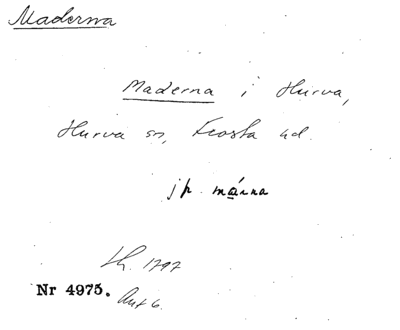 Maderna
Maderna i Hurva,
Hurva sn, Frosta hd.
jp. márna
Lh. 1797
Nr 4975. Ant 6.